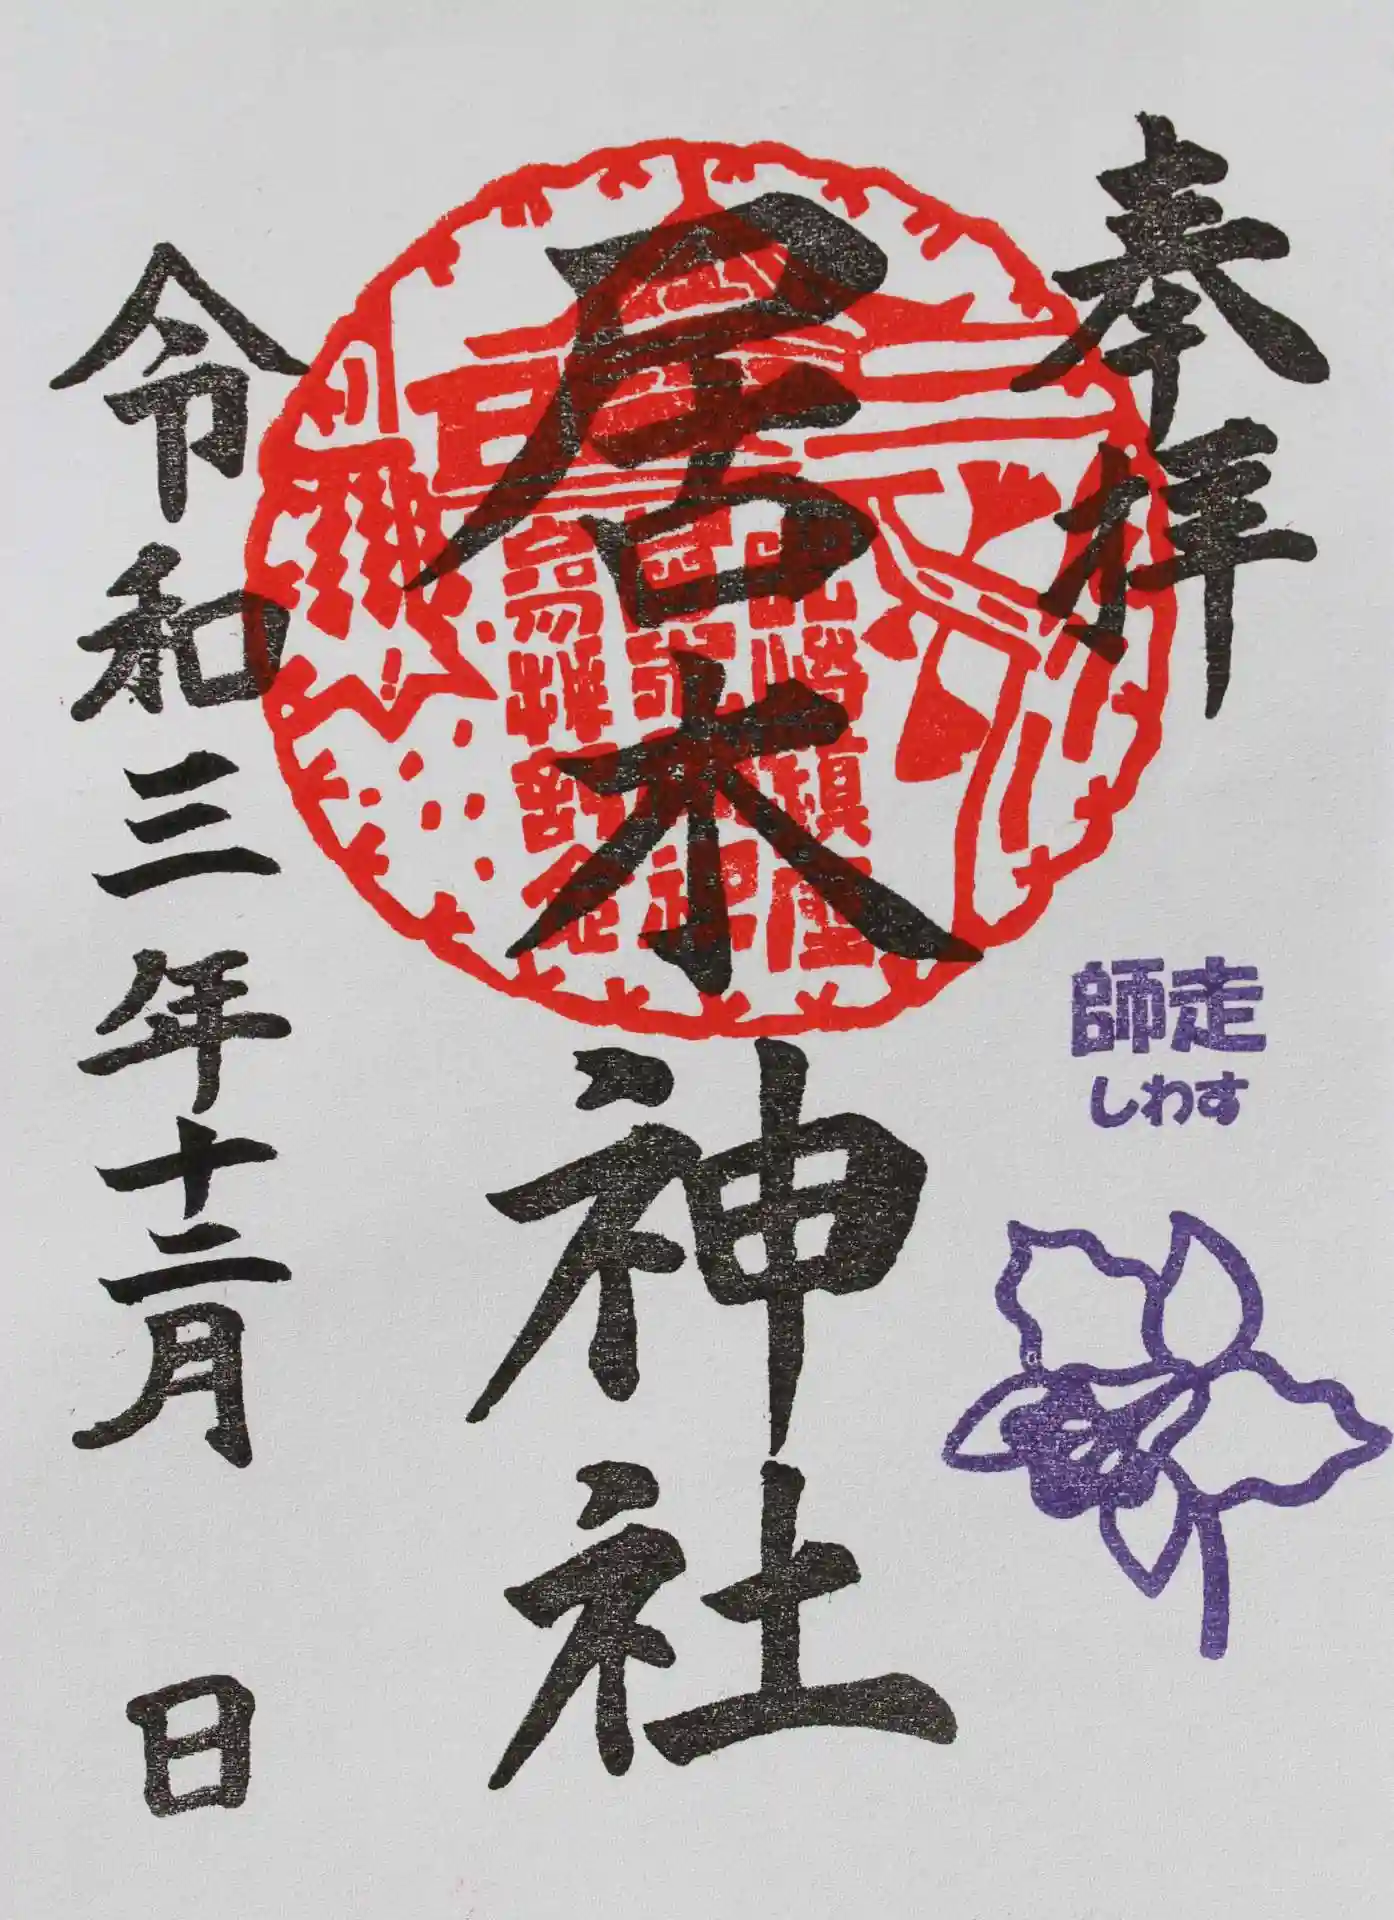 奉拝
師走
しわす
居木神社
令和三年十二月 日